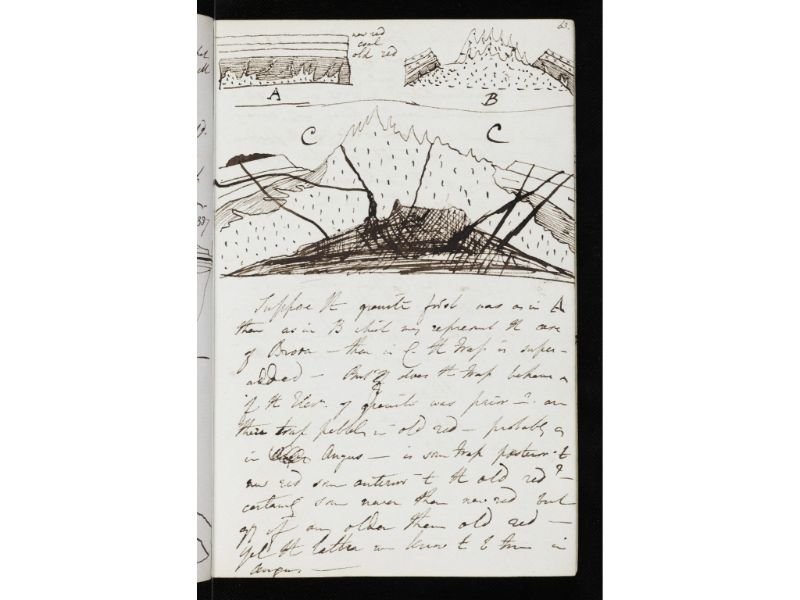 63.
new red
coal
old red
A
B
C
C
337
Suppose the granite first was as in A
then as in B which may represent the case
of Brora – then in C. the trap is super-
added – But does the trap behave as
if the Elevn. of granite was prior –? are
there trap pebbles in old red – probably as
in Angus – is some trap posterior to
new red some anterior to the old red? –
certainly some newer than new red but
if any older than old red –
yet the latter we know to be true in
Angus –